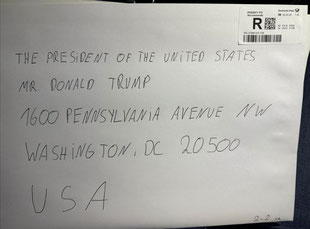 R
THE PRESIDENT OF THE UNITED STATES
MR. DONALD TRUMP
1600 PENNSYLVANIA AVENUE NW
WASHINGTON, DC 20500
USA